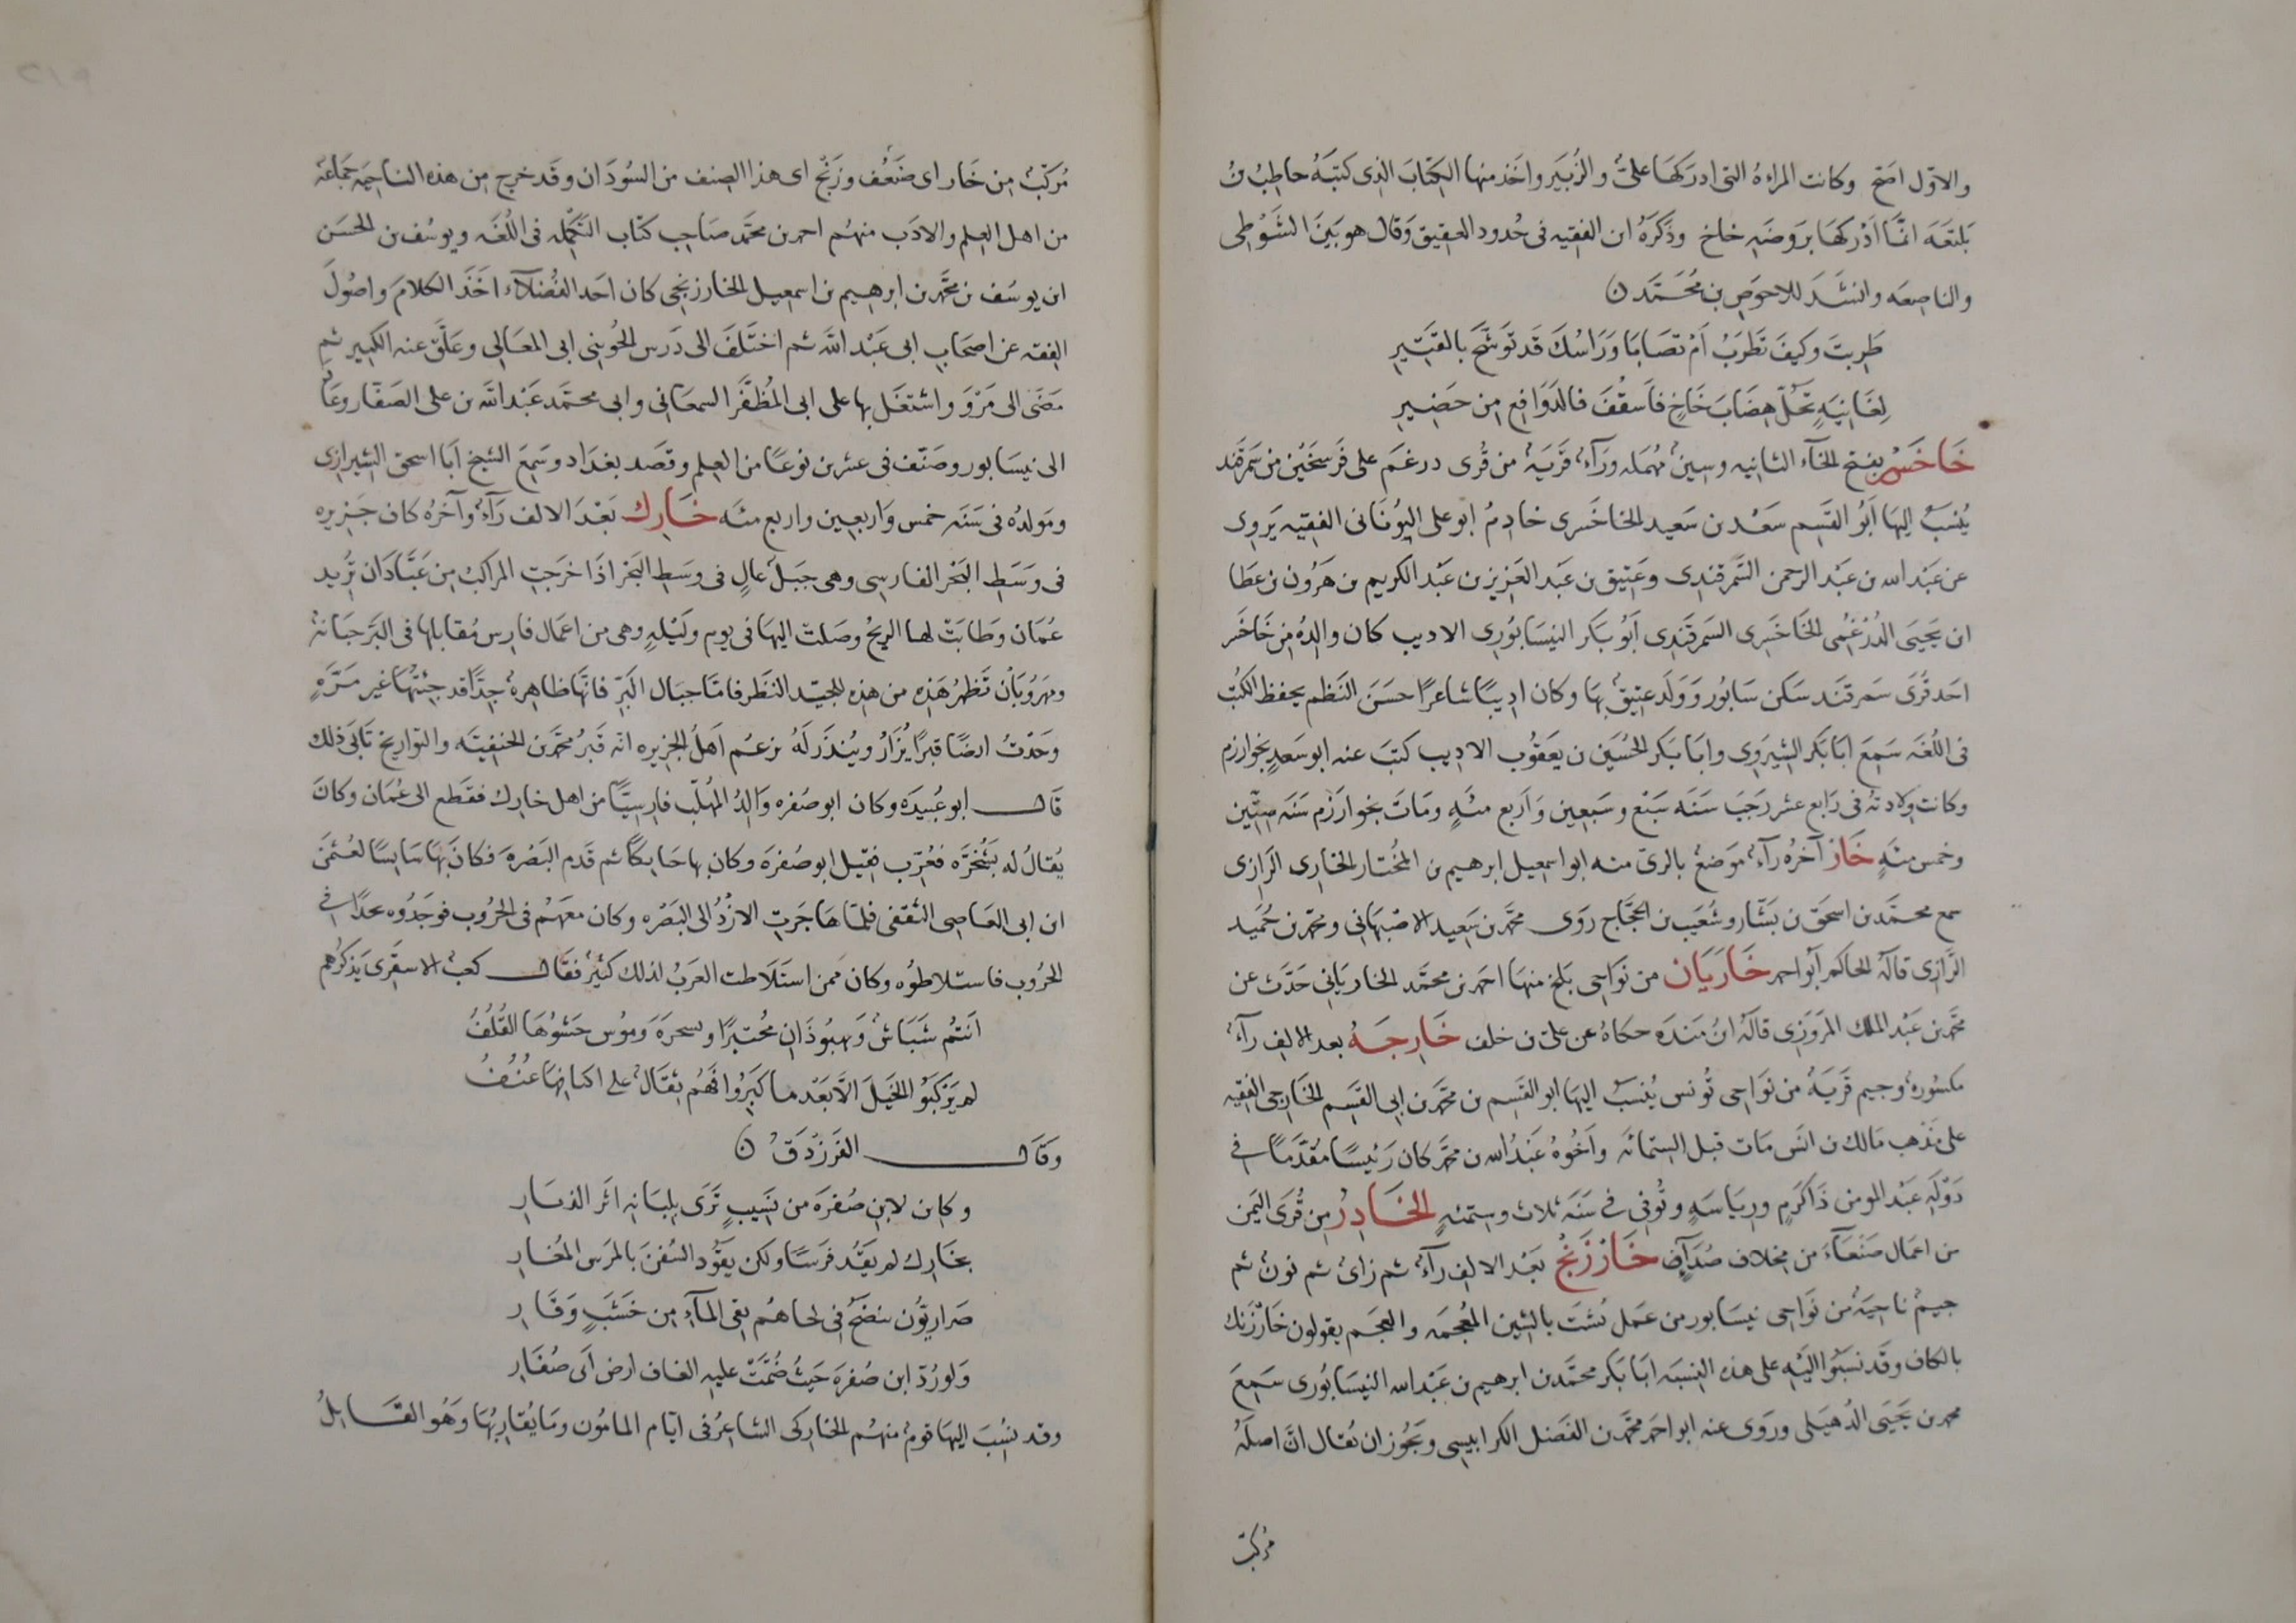 والاوّل اصَح وكانت المراةُ التى ادرَكهَا علىٌّ والزُبَير واخَذ منها الكِتَابَ الذى كتبَهُ حاطِبُ بنُ
بَلتعَهَ انمَّا اَدْركهَا برَوضَهِ خاخ وذَكَرَهُ ابن الفقيه فى حُدود العقيق وَقال هو بَينَ الشَوطى
والناصعَه وانشَدَ للاحوَصِ بن مُحَمَّد ن
طَرِبتَ وكيفَ تَطرَبُ اَمْ تصَابَا وَرَاسُكَ قَد تَوَشَّحَ بالقَتيرِ
لِغَانِيَهٍ تَحُلّ هِضَابَ خَاخٍ فاَسقُفَ فالدَوَافعِ من حَضيرِ
خَاخَسْر بفتح الخآء الثانيه وسِينٌ مُهمَله ورَآءٌ قَريَهٌ من قُرى درغَم على فَرسَخَين من سَمرقَند
يُنسَبُ اليهَا اَبُو القَسِم سَعْد بن سَعيد الخاخَسرى خادِمُ ابو على اليُونَانى الفقيه يَروى
عن عَبْد الله بن عَبْد الرحمن السَّمرقندى وعَتيق بن عَبد العَزيز بن عَبْد الكريم بن هَرُون بن عطَا
ابن يَحيَى الدَرْغَمى الخاخَسرى السَمرقَندى اَبُو بَكر النيسَابُورى الاديب كان والدُه مِن خَاخَسر
احَد قُرَى سَمرقَند سَكن سَابُور وَوَلَد عتيقٌ بهَا وكان اديبًا شاعرًا حسَنَ النَظم يحفظ الكتُب
فى اللُغَه سَمِعَ ابَا بَكر الشيرَوى وابَا بَكر الحُسَين بن يعَقوُب الاديب كتبَ عنه ابو سَعدٍ بخوارزم
وكانت ولادتهُ فى رَابع عشر رَجَبَ سَنَه سَبْع وسَبَعين وَاَربع مئَهٍ ومَاتَ بخوارَزم سَنَه ستّين
وخمس مئَهٍ خَار آخرُه رآءٌ مَوَضعٌ بالرىّ منه ابو اسمعيل ابرهيم بن المُختار الخارى الرازى
سمع محمَّد بن اسحَق بن بَشّار وشُعَيب بن الحجَّاج روَى محَّمد بن سَعيد الاصْبهَانى ومحّمد بن حُمَيد
الرَّازى قالَهُ الحاكم اَبو احمد خَارَيَان من نَوَاحى بَلخ منها احمَد بن محمَّد الخاريانى حَدَّث عن
محَّمد بن عَبْد الملك المَروَزى قالَهُ ابنُ مَندَه حكاهُ عن على بن خلف خَارِجَهُ بعد الالف رآءٌ
مكسُورهٌ وجيم قَريَهٌ من نَوَاحى تُونس يُنسَبُ اليهَا ابو القَسِم بن محَّمد بن ابى القَسِم الخَارجى الفقيه
على مَذهب مَالك بن انسَ مَات قبل الستمائَه واَخُوهُ عَبْدُ الله بن محَّمد كان رَئيسًا مُقدَّمًا فى
دَوْلَهِ عَبْد المومن ذَا كرَمٍ وريَاسَهٍ وتُوفّى فى سَنَه ثلاث وستمئهٍ الخَادِرُ مِن قُرَى اليَمن
من اعمَال صَنعَآءَ من مخلاف صُدَآءٍ خَارْزَنْجُ بَعْد الالف رآءٌ ثم زاىٌ ثم نونٌ ثم
جيمٌ ناحيَهٌ من نَوَاحى نيسَابور من عَمَل بُشتَ بالشين المُعجَمَه والعجَم يقولون خَارْزَنك
بالكاف وقَد نسَبُوا اليَه على هذه النِسبَه ابَا بَكر محمَّد بن ابرهيم بن عَبْد الله النيسَابُورى سَمِعَ
محمد بن يَحيَى الذُهَيلى ورَوى عنه ابو احمَد محَّمد بن الفَضل الكرابيسى ويَجُوز ان يُقال انّ اصلَهُ
مركبٌ
مُرَكَّبٌ مِن خَار اى ضَعُفَ وزَنْجٌ اى هذا الصِنف مَن السُودَان وقَد خرج من هذه الناحيَه جَمَاعَه
من اهل العِلم والادَب منهُم احمد بن محمَّد صَاحِب كتاب التَكمِله فى اللُغَه ويوسُف بن الحسَن
ابن يوسُف بن محَّمد بن ابرهيم بن اسمعيل الخارزنجى كان احَد الفُضلآء اخَذَ الكلامَ واصُولَ
الفِقه عن اصحَابِ ابى عَبْد الله ثم اختَلَفَ الى دَرس الجُوينى ابى المعَالى وعَلَّقَ عنه الكبير ثم
مضَى الى مَرْوَ واشتغَل بها على ابى المُظفَّر السمعَانى وابى محمَّد عَبْد الله بن على الصَفَّار وعَادَ
الى نيسَابور وصَنّف فى عشرين نوعًا من العِلم وقصَد بغدَاد وسَمِعَ الشيخ اَبا اسحق الشيرازى
ومَولدُه فى سَنَه خمس وَاربعين واربع مئَه خَارِك بَعْدَ الالف رَآءٌ وآخرُه كاف جَزيره
فى وَسَطِ البَحْر الفارسى وهى جبَل عالٍ فى وسَطِ البَحر اذَا خرَجَتِ المراكبُ مِن عَبَّادَان تُريد
عُمَانَ وطَابَتْ لها الريحُ وصَلت اليهَا فى يوم ولَيْلهٍ وهى من اعمَال فارس مُقابلها فى البَر جنَّابَهُ
ومَهرُوبَانُ تَظهرُ هَذِه من هذِه للجَيّد النَظر فامّا جبَال البَرِّ فانّهَا ظاهرهٌ جِدًّا قد جِئتُهَا غير مَرَّهٍ
وَجَدْتُ ايضًا قبرًا يُزَارُ ويُنذَر لَهُ يزعُم اَهلُ الجزيره انّه قَبرُ محَّمد بن الحَنفيّه والتواريخ تَابَى ذلك
قَال ابو عُبيدَه وكان ابو صُفره وَالِدُ المُهلّب فارسِيًّا من اهل خارك فقَطع الى عُمَان وكانَ
يُقالُ له بَسْخَرَّه فعُرِّب فقيل ابو صُفرَه وكان بها حَايكًا ثم قَدم البَصْرَه فكانَ بهَا سَايسًا لعُثمنَ
ابن ابى العَاصى الثقفى فلمّا هَاجَرتِ الازْدُ الى البَصْره وكان معَهُم فى الحُرُوب فوَجَدُوه نجدًا فى
الحُرُوب فاستلاطوُه وكان ممن استَلَاطت العرَبُ لذلك كثيرٌ فقَال كعبٌ الاشقَرى يَذكرُهم
اَنتُم شَبَاشٌ وَبهبُوذَان مُختبَرًا وبسحرَهَ وَمؤُس حَشوُهَا القُلُفُ
لم يَرَكَبُو الخَيلَ الَّا بَعْد ما كَبِرُوا فَهُم ثِقَالٌ على اكتافهَا عُنُفُ
وَقَال الفَرَزْدَقُ ن
وكاين لابن صُفرَه من نَسِيبٍ تَرَى بِلبَانهِ اثَر الزيَارِ
بخَارك لم يَقُد فرَسًا ولكن يقَوُد السُفنَ بالمَرَس المُغَارِ
صَراريُّون ينضَحُ فى لحاهُم نفِى المآءِ مِن خَشَبٍ وَقَارِ
وَلورُدّ ابن صُفرَه حَيثُ ضُمَّتْ عليهِ الغاف ارض اَبى صُفَارِ
وقد نُسِبَ اليهَا قومٌ منهُم الخَاركى الشاعرُ فى ايّام المامُون ومَا يُقاربُهَا وَهُو القَايلُ